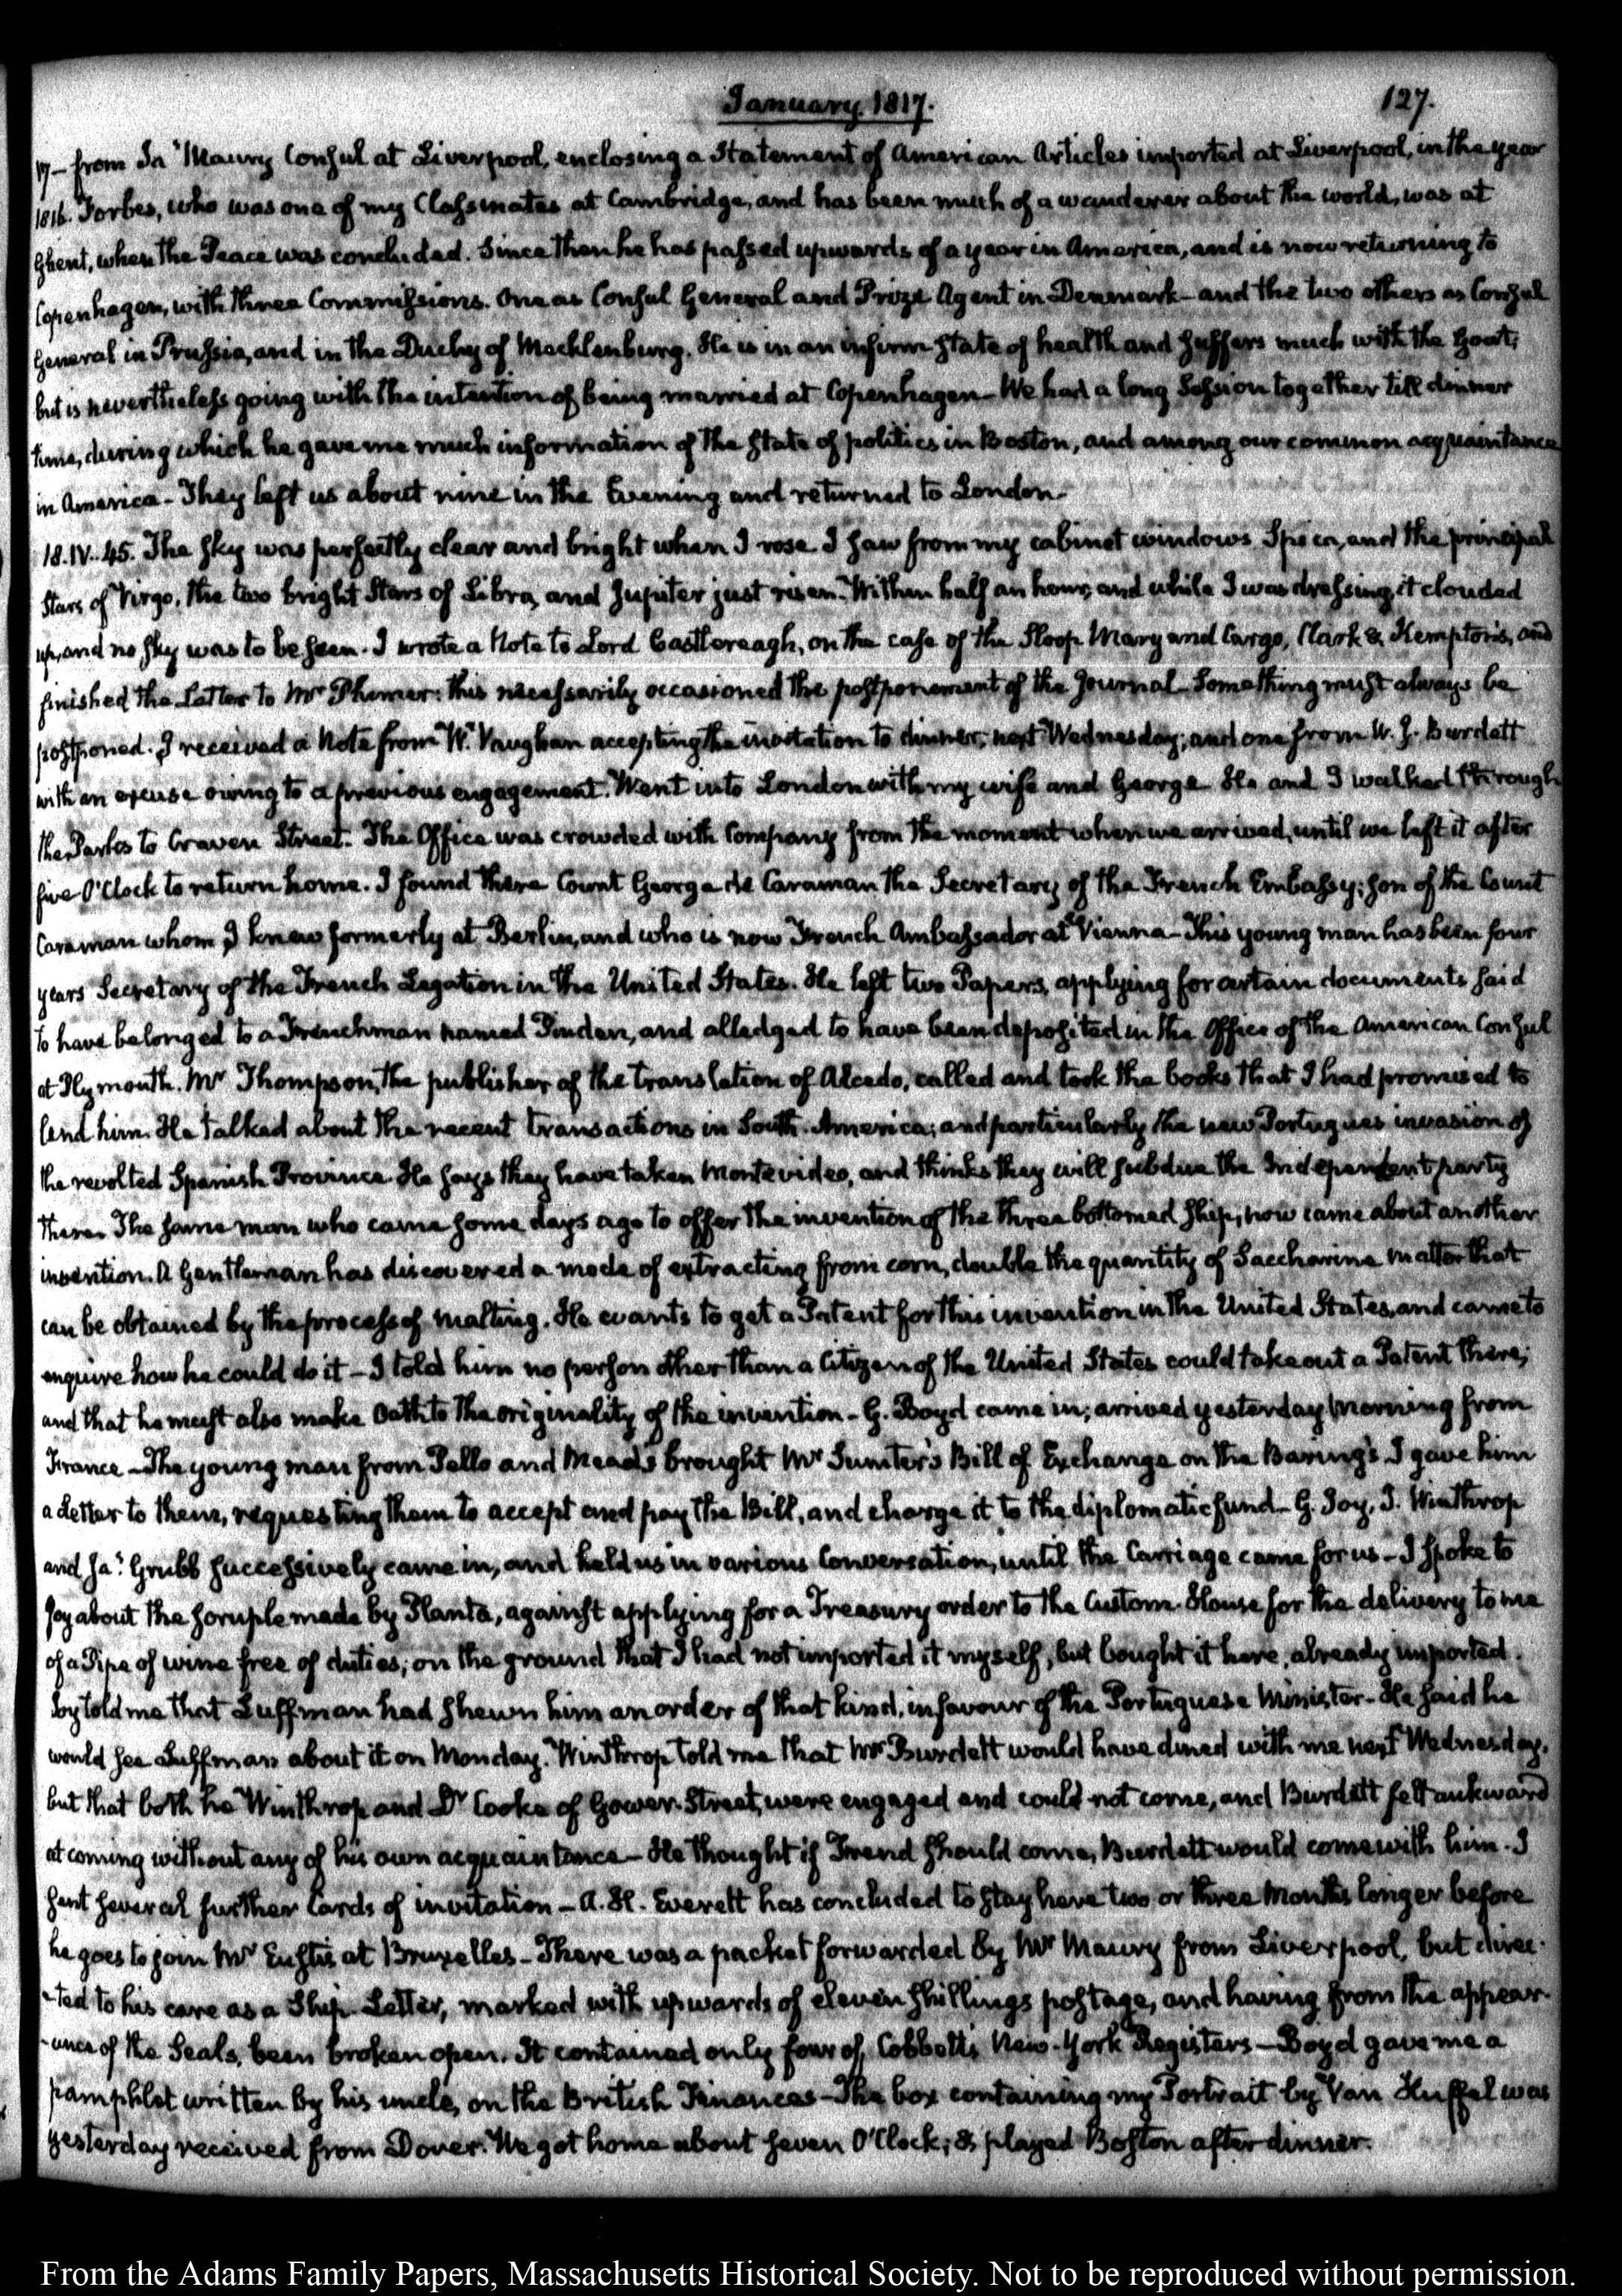 January. 1817.
127.
17 — from Ja.s Maury Consul at Liverpool, enclosing a Statement of American Articles imported at Liverpool, in the year
1816. Forbes, who was one of my Classmates at Cambridge, and has been much of a wanderer about the world, was at
Ghent, when the Peace was concluded. Since then he has passed upwards of a year in America, and is now returning to
Copenhagen, with three Commissions. One as Consul General and Prize Agent in Denmark — and the two others as Consul
General in Prussia, and in the Duchy of Mecklenburg. He is in an infirm state of health and suffers much with the Gout;
but is nevertheless going with the intention of being married at Copenhagen — We had a long Session together till dinner
time, during which he gave me much information of the state of politics in Boston, and among our common acquaintance
in America — They left us about nine in the Evening and returned to London.
18. IV..45. The sky was perfectly clear and bright when I rose I saw from my cabinet windows Spica, and the principal
Stars of Virgo, the two bright Stars of Libra, and Jupiter just risen. Within half an hour, and while I was dressing, it clouded
up, and no sky was to be seen. I wrote a Note to Lord Castlereagh, on the case of the Sloop Mary and Cargo, Clark & Kempton's, and
finished the Letter to Mr Plumer: this necessarily occasioned the postponement of the Journal — Something must always be
postponed. I received a Note from W. Vaughan accepting the invitation to dinner, next Wednesday; and one from W. J. Burdett
with an excuse owing to a previous engagement. Went into London with my wife and George He and I walked through
the Parks to Craven Street. The Office was crowded with Company from the moment when we arrived, until we left it after
five O'Clock to return home. I found there Count George de Caraman the Secretary of the French Embassy; son of the Count
Caraman whom I knew formerly at Berlin, and who is now French Ambassador at Vienna — This young man has been four
years Secretary of the French Legation in the United States. He left two Papers, applying for certain documents said
to have belonged to a Frenchman named Pinden, and alledged to have been deposited in the Office of the American Consul
at Plymouth. Mr Thompson, the publisher of the translation of Alcedo, called and took the books that I had promised to
lend him. He talked about the recent transactions in South-America; and particularly the new Portugues invasion of
the revolted Spanish Province. He says they have taken Montevideo, and thinks they will subdue the Independent party
there. The same man who came some days ago to offer the invention of the three bottomed ship, now came about another
invention. A Gentleman has discovered a mode of extracting from corn, double the quantity of Saccharine matter that
can be obtained by the process of malting. He wants to get a Patent for this invention in the United States, and came to
enquire how he could do it — I told him no person other than a Citizen of the United States could take out a Patent there;
and that he must also make Oath to the originality of the invention — G. Boyd came in; arrived yesterday morning from
France — The young man from Pello and Mead's brought Mr Sumter's Bill of Exchange on the Baring's I gave him
a Letter to them, requesting them to accept and pay the Bill, and charge it to the diplomatic fund — G. Joy, J. Winthrop
and Ja.s Grubb successively came in, and held us in various Conversation, until the Carriage came for us — I spoke to
Joy about the scruple made by Planta, against applying for a Treasury order to the Custom-House for the delivery to me
of a Pipe of wine free of duties; on the ground that I had not imported it myself, but bought it here, already imported.
Joy told me that Luffman had shewn him an order of that kind, in favour of the Portuguese Minister — He said he
would see Luffman about it on Monday. Winthrop told me that Mr Burdett would have dined with me next Wednesday,
but that both he Winthrop and Dr Cooke of Gower-Street, were engaged and could not come, and Burdett felt aukward
at coming without any of his own acquaintance — He thought if Frend should come, Burdett would come with him. I
sent several further Cards of invitation — A. H. Everett has concluded to stay here two or three Months longer before
he goes to join Mr Eustis at Bruxelles — There was a packet forwarded by Mr Maury from Liverpool, but direc-
-ted to his care as a Ship-Letter, marked with upwards of eleven shillings postage, and having from the appear-
-ance of the Seals, been broken open. It contained only four of Cobbett's New-York Registers — Boyd gave me a
pamphlet written by his uncle, on the British Finances — The box containing my Portrait by Van Huffel was
yesterday received from Dover. We got home about seven O'Clock; & played Boston after dinner.
From the Adams Family Papers, Massachusetts Historical Society. Not to be reproduced without permission.